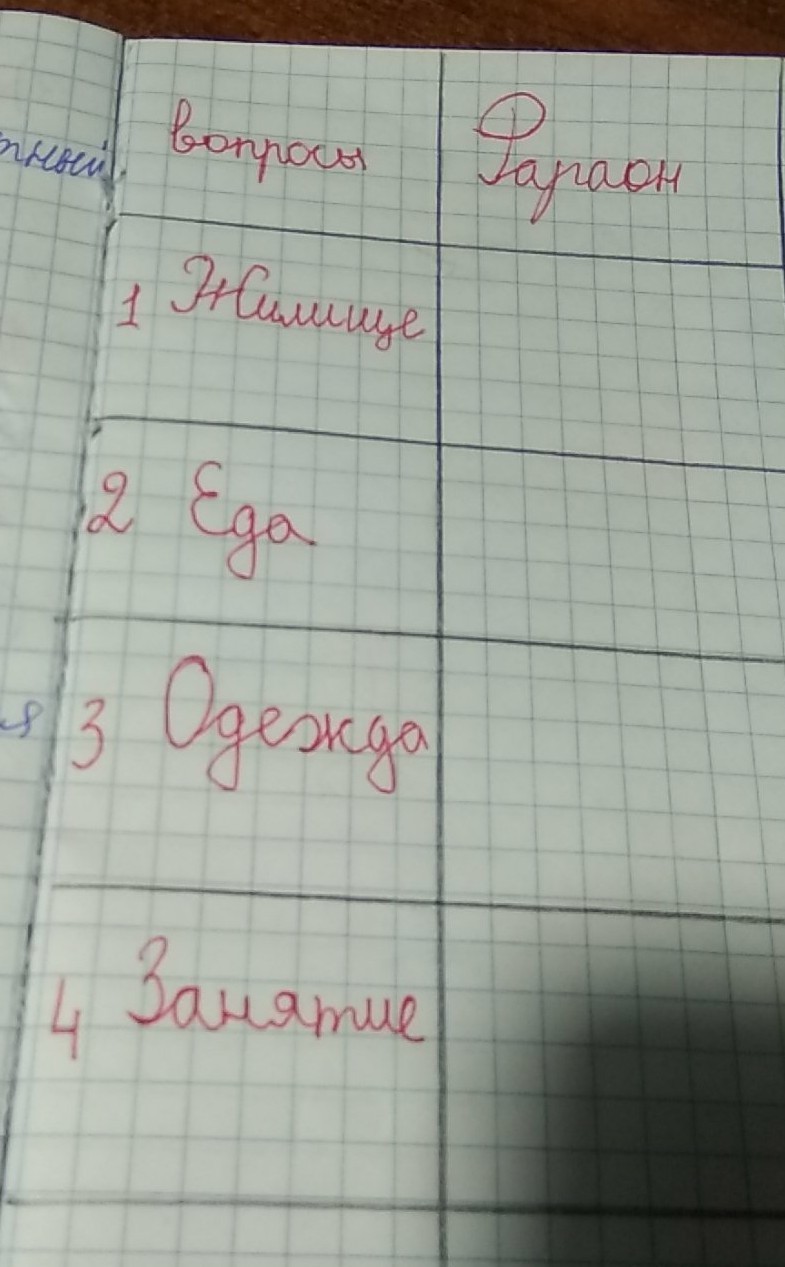 вопросы
Фараон
1 Жилище
2 Еда
3 Одежда
4 Занятие